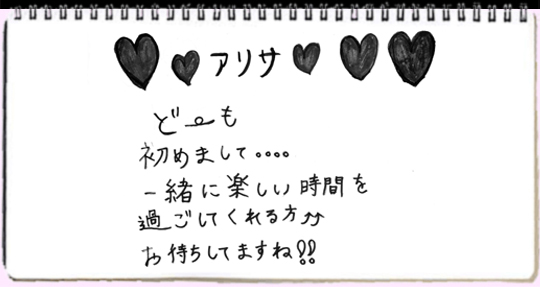 アリサ
ど〜も
初めまして・・・・
一緒に楽しい時間を
過ごしてくれる方⤴⤴
お待ちしてますね!!